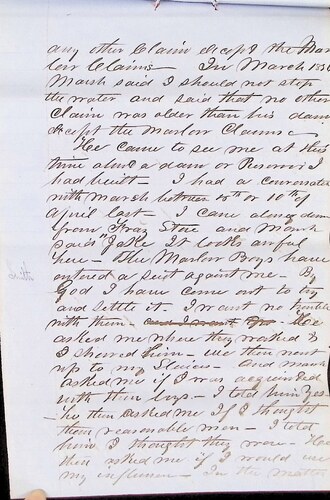 any other Claim except the Mar
low Claims – In March 185
Marsh said I should not stop
the water and said that no other
Claim was older than his dam
except the Marlow Claims –
He came to see me at this
time about a dam or Reservoir I
had built – I had a conversation
with Marsh between 15th or 10th of
April last – I came along down
from Store and Marsh
said Jake It looks awful
here – The Marlow Boys have
entered a suit against me – By
God I have come out to try
and settle it. I want no trouble
with them – and I want He
asked me where they washed &
I showed him – we then went
up to my Sluices – And Marsh
asked me if I was acquainted
with them boys – I told him Yes –
he then asked me If I thought
them reasonable men – I told
him I thought they were – He
then asked me if I would use
my influence – In the matter